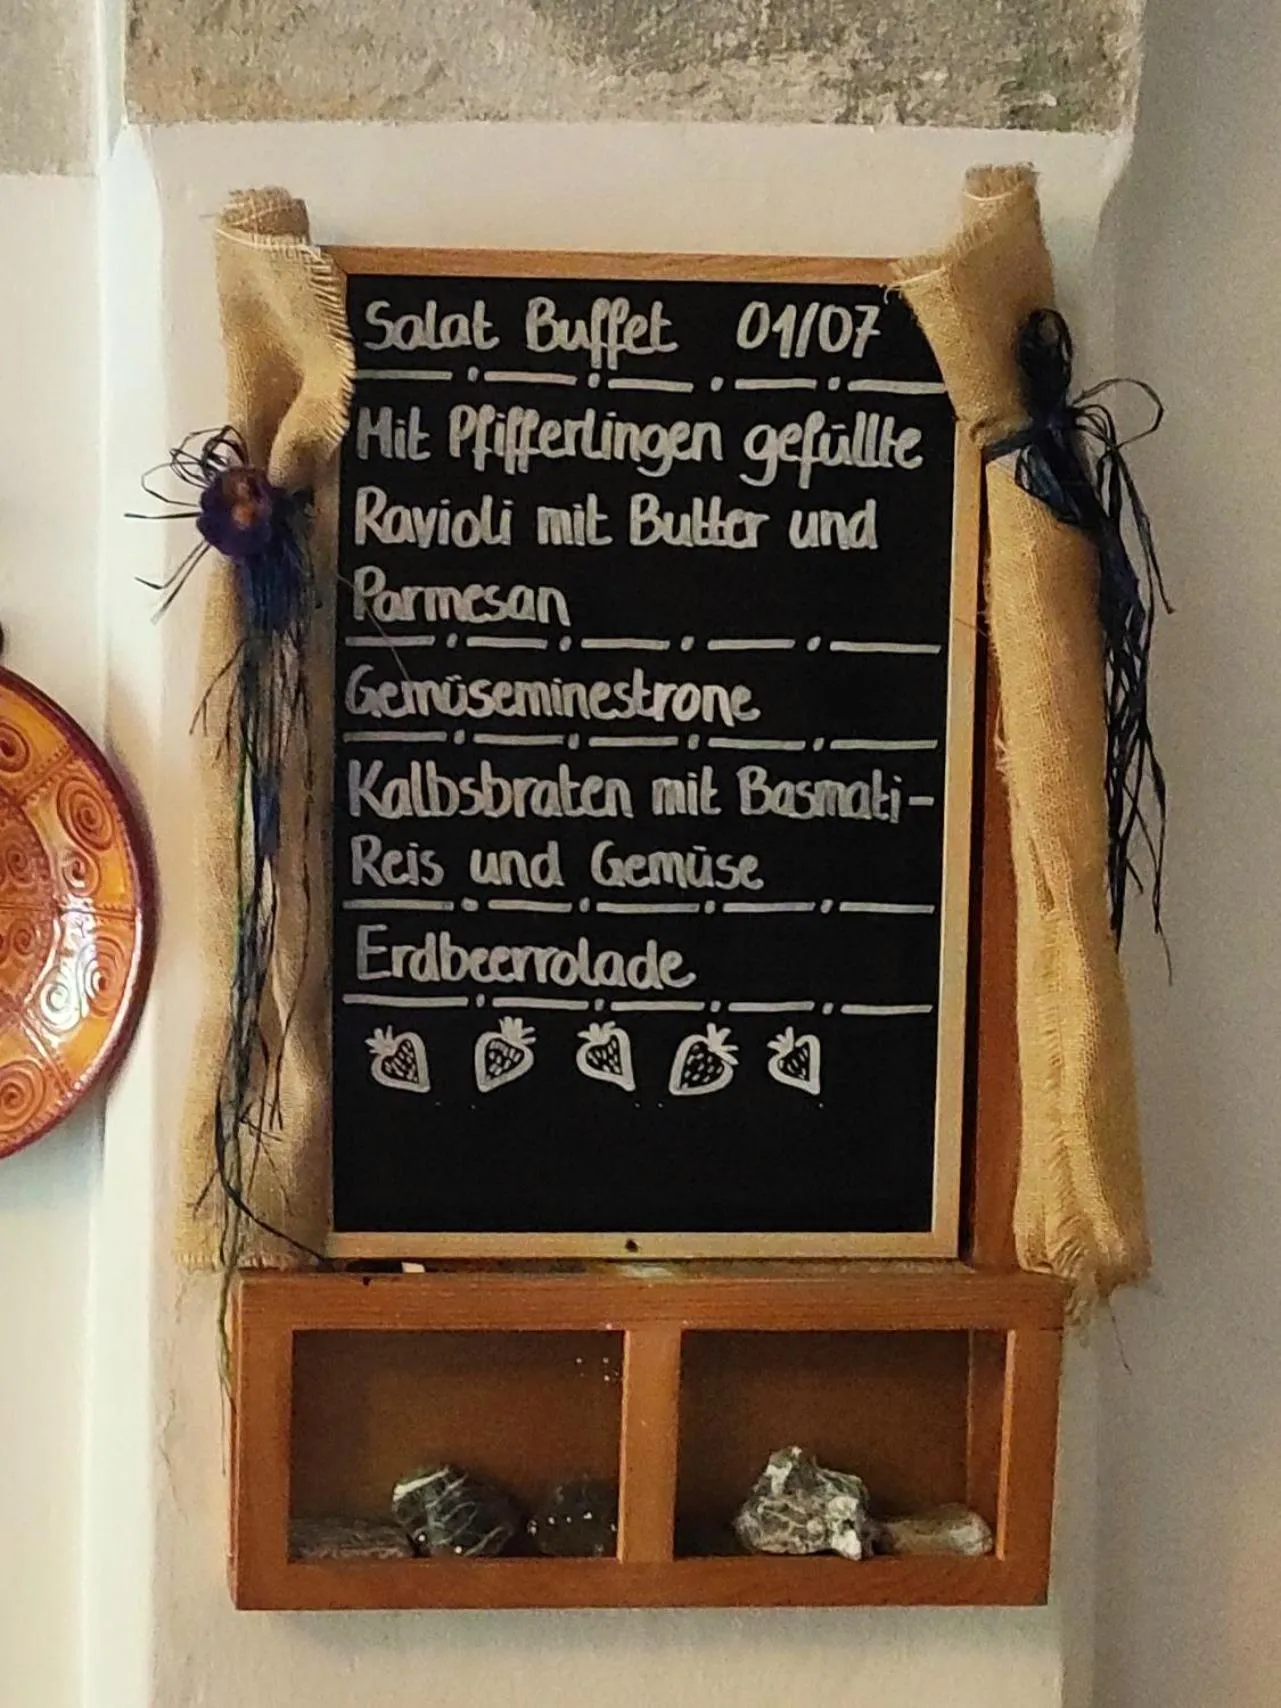 Salat Buffet 01/07
Mit Pfifferlingen gefüllte
Ravioli mit Butter und
Parmesan
Gemüseminestrone
Kalbsbraten mit Basmati-
Reis und Gemüse
Erdbeerrolade